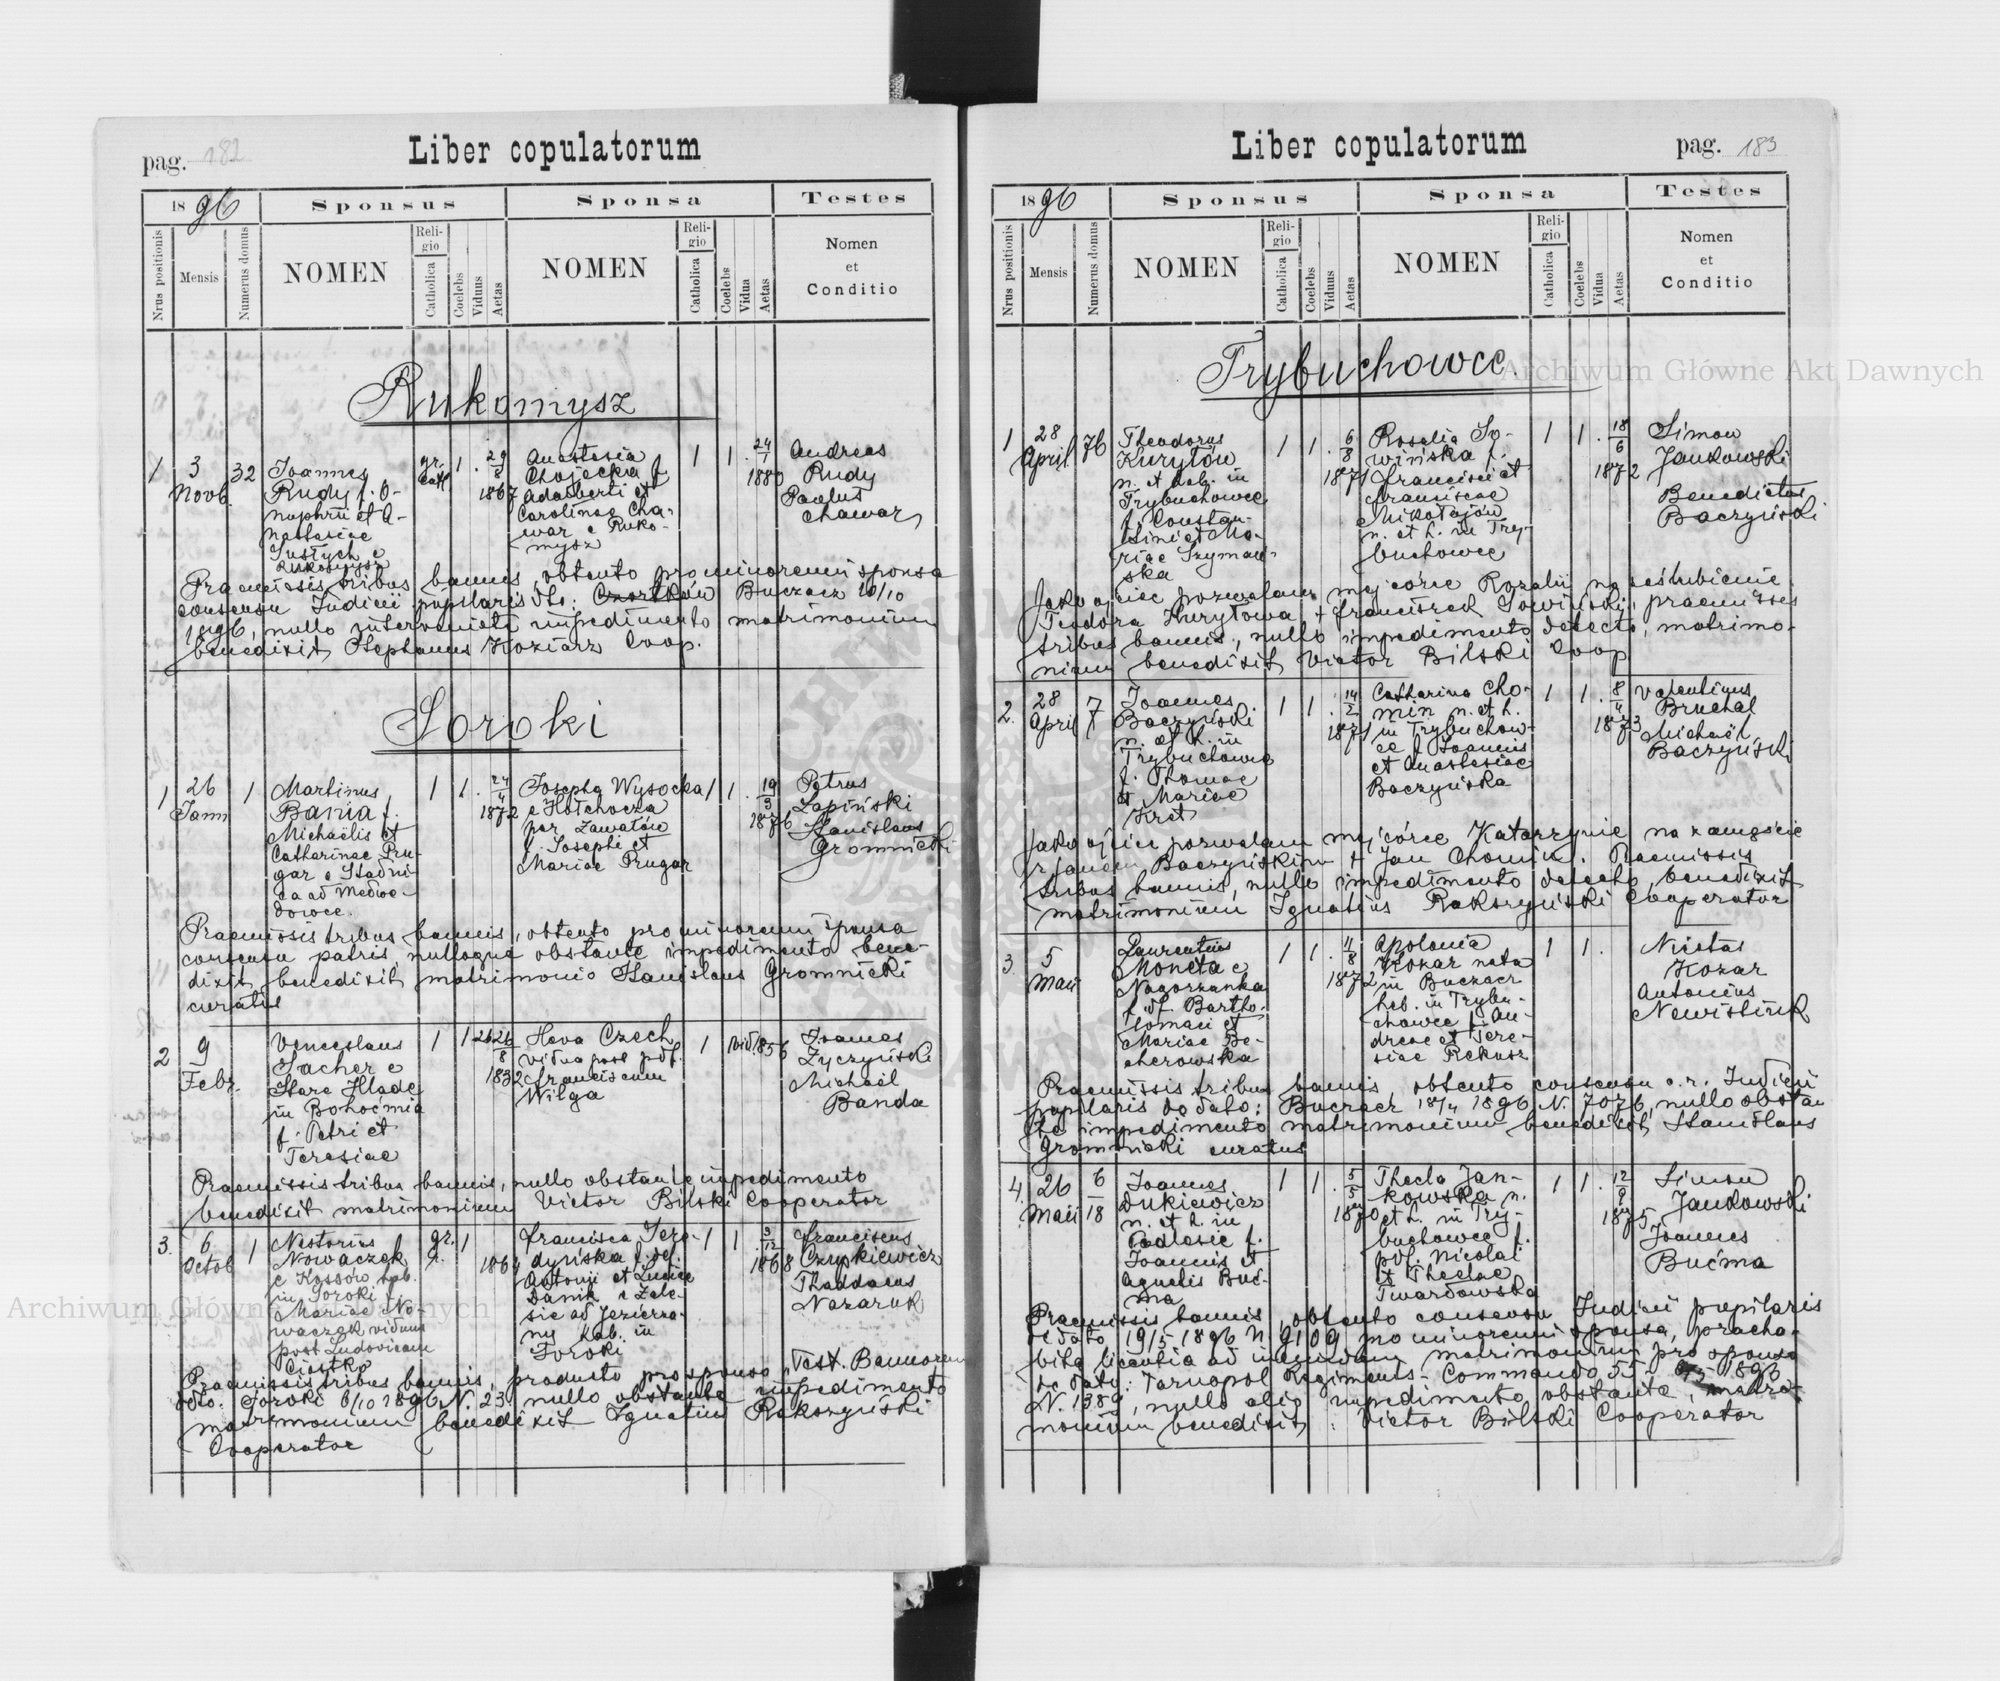 pag. 182
Liber copulatorum
1896
Sponsus
Sponsa
Testes
Nrus positionis
Mensis
Numerus domus
NOMEN
Reli-
gio
Catholica
Coelebs
Viduus
Aetas
NOMEN
Reli-
gio
Catholica
Coelebs
Vidua
Aetas
Nomen
et
Conditio
Rukomysz
1
3
Novb.
32
Joannes
Rudy f. O-
nuphrii et A-
nastasiae
Sustych e
Rukomysz
gr.
cath
1
29
8
1867
Anastasia
Chojecka f
Adalberti et
Carolinae Cha-
war e Ruko-
mysz
1
1
24
1
1880
Andreas
Rudy
Paulus
Chawar
Praemissis tribus bannis obtento pro minorenni sponsa
consensu Judicii pupilaris dto: Czortków Buczacz 20/10
1896, nullo interveniente impedimento matrimonium
benedixit Stephanus Koziarz Coop.
Soroki
1
26
Jann
1
Martinus
Bania f.
Michaëlis et
Catharinae Pru-
gar e Stadni-
ca ad Medwe-
dowce.
1
1
24
4
1872
Josepha Wysocka
e Hołhocza
par Zawałów
f. Josephi et
Mariae Prugar
1
1
19
3
1876
Petrus
Łapiński
Stanislaus
Gromnicki
Praemissis tribus bannis, obtento pro minorenni sponsa
consensu patris, nulloque obstante impedimento bene-
dixit benedixit matrimonio Stanislaus Gromnicki
curatus
2
9
Febr.
Venceslaus
Sacher e
Stare Hlade
in Bohoemia
f. Petri et
Teresiae
1
1
26
8
1832
Heva Czech
vidua post pdf.
Franciscum
Wilga
1
vid.
1856
Joannes
Życzyński
Michaël
Banda
Praemissis tribus bannis, nullo obstante impedimento
benedixit matrimonium Victor Bilski Cooperator
3.
6
Octob
1
Nestorius
Nowaczek
e Kossów hab.
in Soroki f.
Mariae No-
waczek viduus
post Ludovicam
Ciastko
gr.
c.
1
1864
Francisca Jero-
dyńska f. def.
Antonii et Luciae
Danik e Zale-
sie ad Jezierza-
ny hab. in
Soroki
1
1
3
12
1868
Franciscus
Czyżkiewicz
Thaddaeus
Nazaruk
Praemissis tribus bannis, producto pro sponso Test. Bannorum
dto. Soroki 6/10 1896 N. 23, nullo obstante impedimento
matrimonium benedixit Ignatius Rokszyński
Cooperator
Liber copulatorum
pag. 183
1896
Sponsus
Sponsa
Testes
Nrus positionis
Mensis
Numerus domus
NOMEN
Reli-
gio
Catholica
Coelebs
Viduus
Aetas
NOMEN
Reli-
gio
Catholica
Coelebs
Vidua
Aetas
Nomen
et
Conditio
Trybuchowce.
1
28
April
76
Theodorus
Kurytów
n. et hab. in
Trybuchowce
f. Constan-
tini et Ma-
riae Szymań-
ska
1
1
6
8
1871
Rosalia So-
wińska f.
Francisci et
Franciscae
Mikołajów
n. et h. in Try-
buchowce
1
1
18
6
1872
Simon
Jankowski
Benedictus
Baczyński
Jako ojciec pozwalam mej córce Rozalii na zaślubienie
Teodora Kurytowa + Franciszek Sowiński, praemissis
tribus bannis, nullo impedimento detecto, matrimo-
nium benedixit Victor Bilski Coop
2.
28
April
7
Joannes
Baczyński
n. et h. in
Trybuchowce
f. Thomae
et Mariae
Kret
1
1
14
2
1871
Catharina Cho-
min n. et h.
in Trybuchow-
ce f. Joannis
et Anastasiae
Baczyńska
1
1
8
4
1873
Valentinus
Bruchal
Michaël
Baczyński
Jako ojciec pozwalam mej córce Katarzynie na zamęście
z Janem Baczyńskim + Jan Chomin. Praemissis
tribus bannis, nullo impedimento detecto, benedixit
matrimonium Ignatius Rokszyński Cooperator
3.
5
Maii
Laurentius
Moneta e
Nagorzanka
f. df. Bartho-
lomaei et
Mariae Be-
cherowska
1
1
11
8
1872
Apolonia
Kozar nata
in Buczacz
hab. in Trybu-
chowce f. An-
dreae et Tere-
siae Rekusz
1
1
Nicetas
Kozar
Antonius
Newistiuk
Praemissis tribus bannis, obtento consensu c. r. Judicii
pupilaris de dato: Buczacz 18/4 1896 N. 7076, nullo obstan
te impedimento matrimonium benedixit Stanislaus
Gromnicki curatus
4.
26
Maii
6
18
Joannes
Dukiewicz
n. et h. in
Podlesie f.
Joannis et
Agnetis Buć-
ma
1
1
5
5
1870
Thecla Jan-
kowska n.
et h. in Try-
buchowce f.
pdf. Nicolai
et Theclae
Twardowska
1
1
12
9
1875
Simon
Jankowski
Joannes
Bućma
Praemissis bannis, obtento consensu Judicii pupilaris
de dato 19/5 1896 N. 9109 pro minorenni sponsa, praeha-
bita licentia ad ineundum matrimonium pro sponso
de dato: Tarnopol Regiments-Commando 55 1896
N. 1389, nullo alio impedimento obstante, matri-
monium benedixit: Victor Bilski Cooperator
Archiwum Główne Akt Dawnych
Archiwum Główne Akt Dawnych